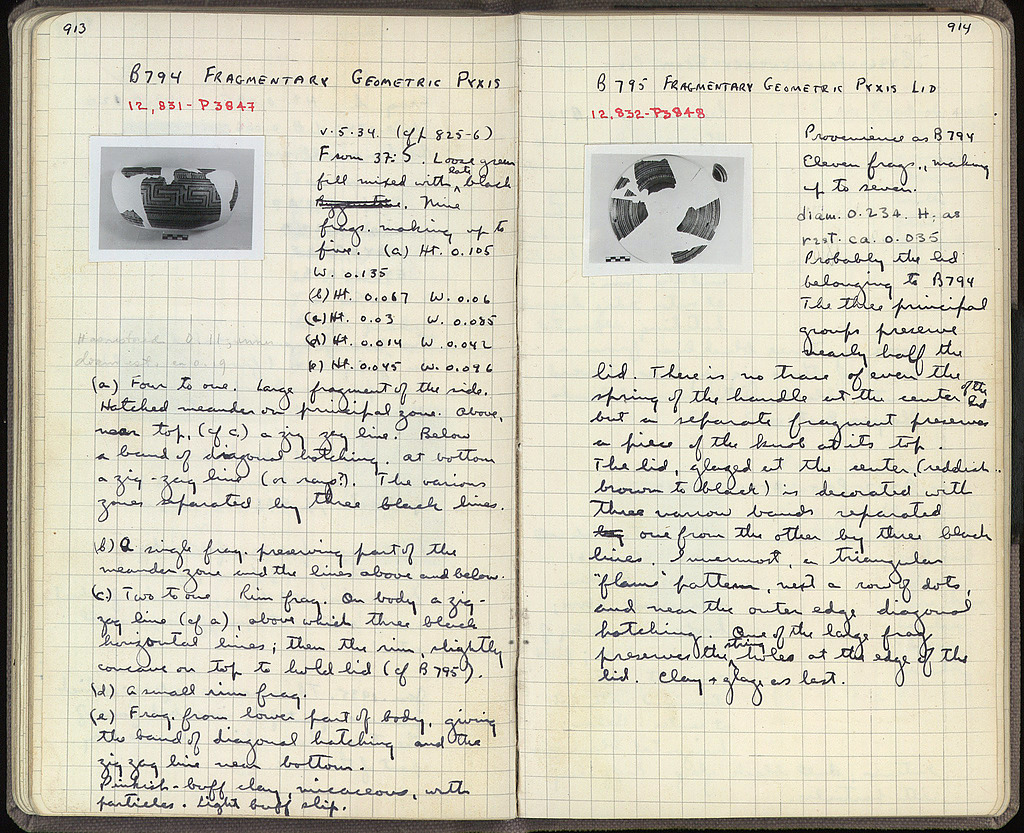 913
B794 FRAGMENTARY GEOMETRIC PYXIS
12,831-P3847
v.5.34. (cf p 825-6)
From 37:5. Loose green
fill mixed with late black
Nine
frags. making up to
five. (a) Ht. 0.105
W. 0.135
(b) Ht. 0.067 W. 0.06
(c) Ht. 0.03 W. 0.085
(d) Ht. 0.014 W. 0.042
(e) Ht. 0.045 W. 0.096
(a) Four to one. Large fragment of the side.
Hatched meander on principal zone. Above,
near top, (cf c) a zig zag line. Below
a band of diagonal hatching. At bottom
a zig-zag line (or rays?). The various
zones separated by three black lines.
(b) A single frag. preserving part of the
meander zone and the lines above and below.
(c) Two to one Rim frag. On body a zig-
zag line (cf a), above which three black
horizontal lines; then the rim, slightly
concave on top to hold lid (cf B795).
(d) A small rim frag.
(e) Frag. from lower part of body, giving
the band of diagonal hatching and the
zig zag line near bottom.
Pinkish-buff clay, micaceous, with
particles. Light buff slip.
914
B 795 FRAGMENTARY GEOMETRIC PYXIS LID
12,832-P3848
Provenience as B794
Eleven frags., making
up to seven.
diam. 0.234. H. as
rest. ca. 0.035
Probably the lid
belonging to B794
The three principal
groups preserve
nearly half the
lid. There is no trace of even the
spring of the handle at the center of the lid
but a separate fragment preserves
a piece of the knob at its top.
The lid, glazed at the center, (reddish-
brown to black) is decorated with
three narrow bands separated
one from the other by three black
lines. Innermost, a triangular
"flame" pattern, next a row of dots,
and near the outer edge diagonal
hatching. One of the large frag
preserves the string holes at the edge of the
lid. Clay + glaze as last.